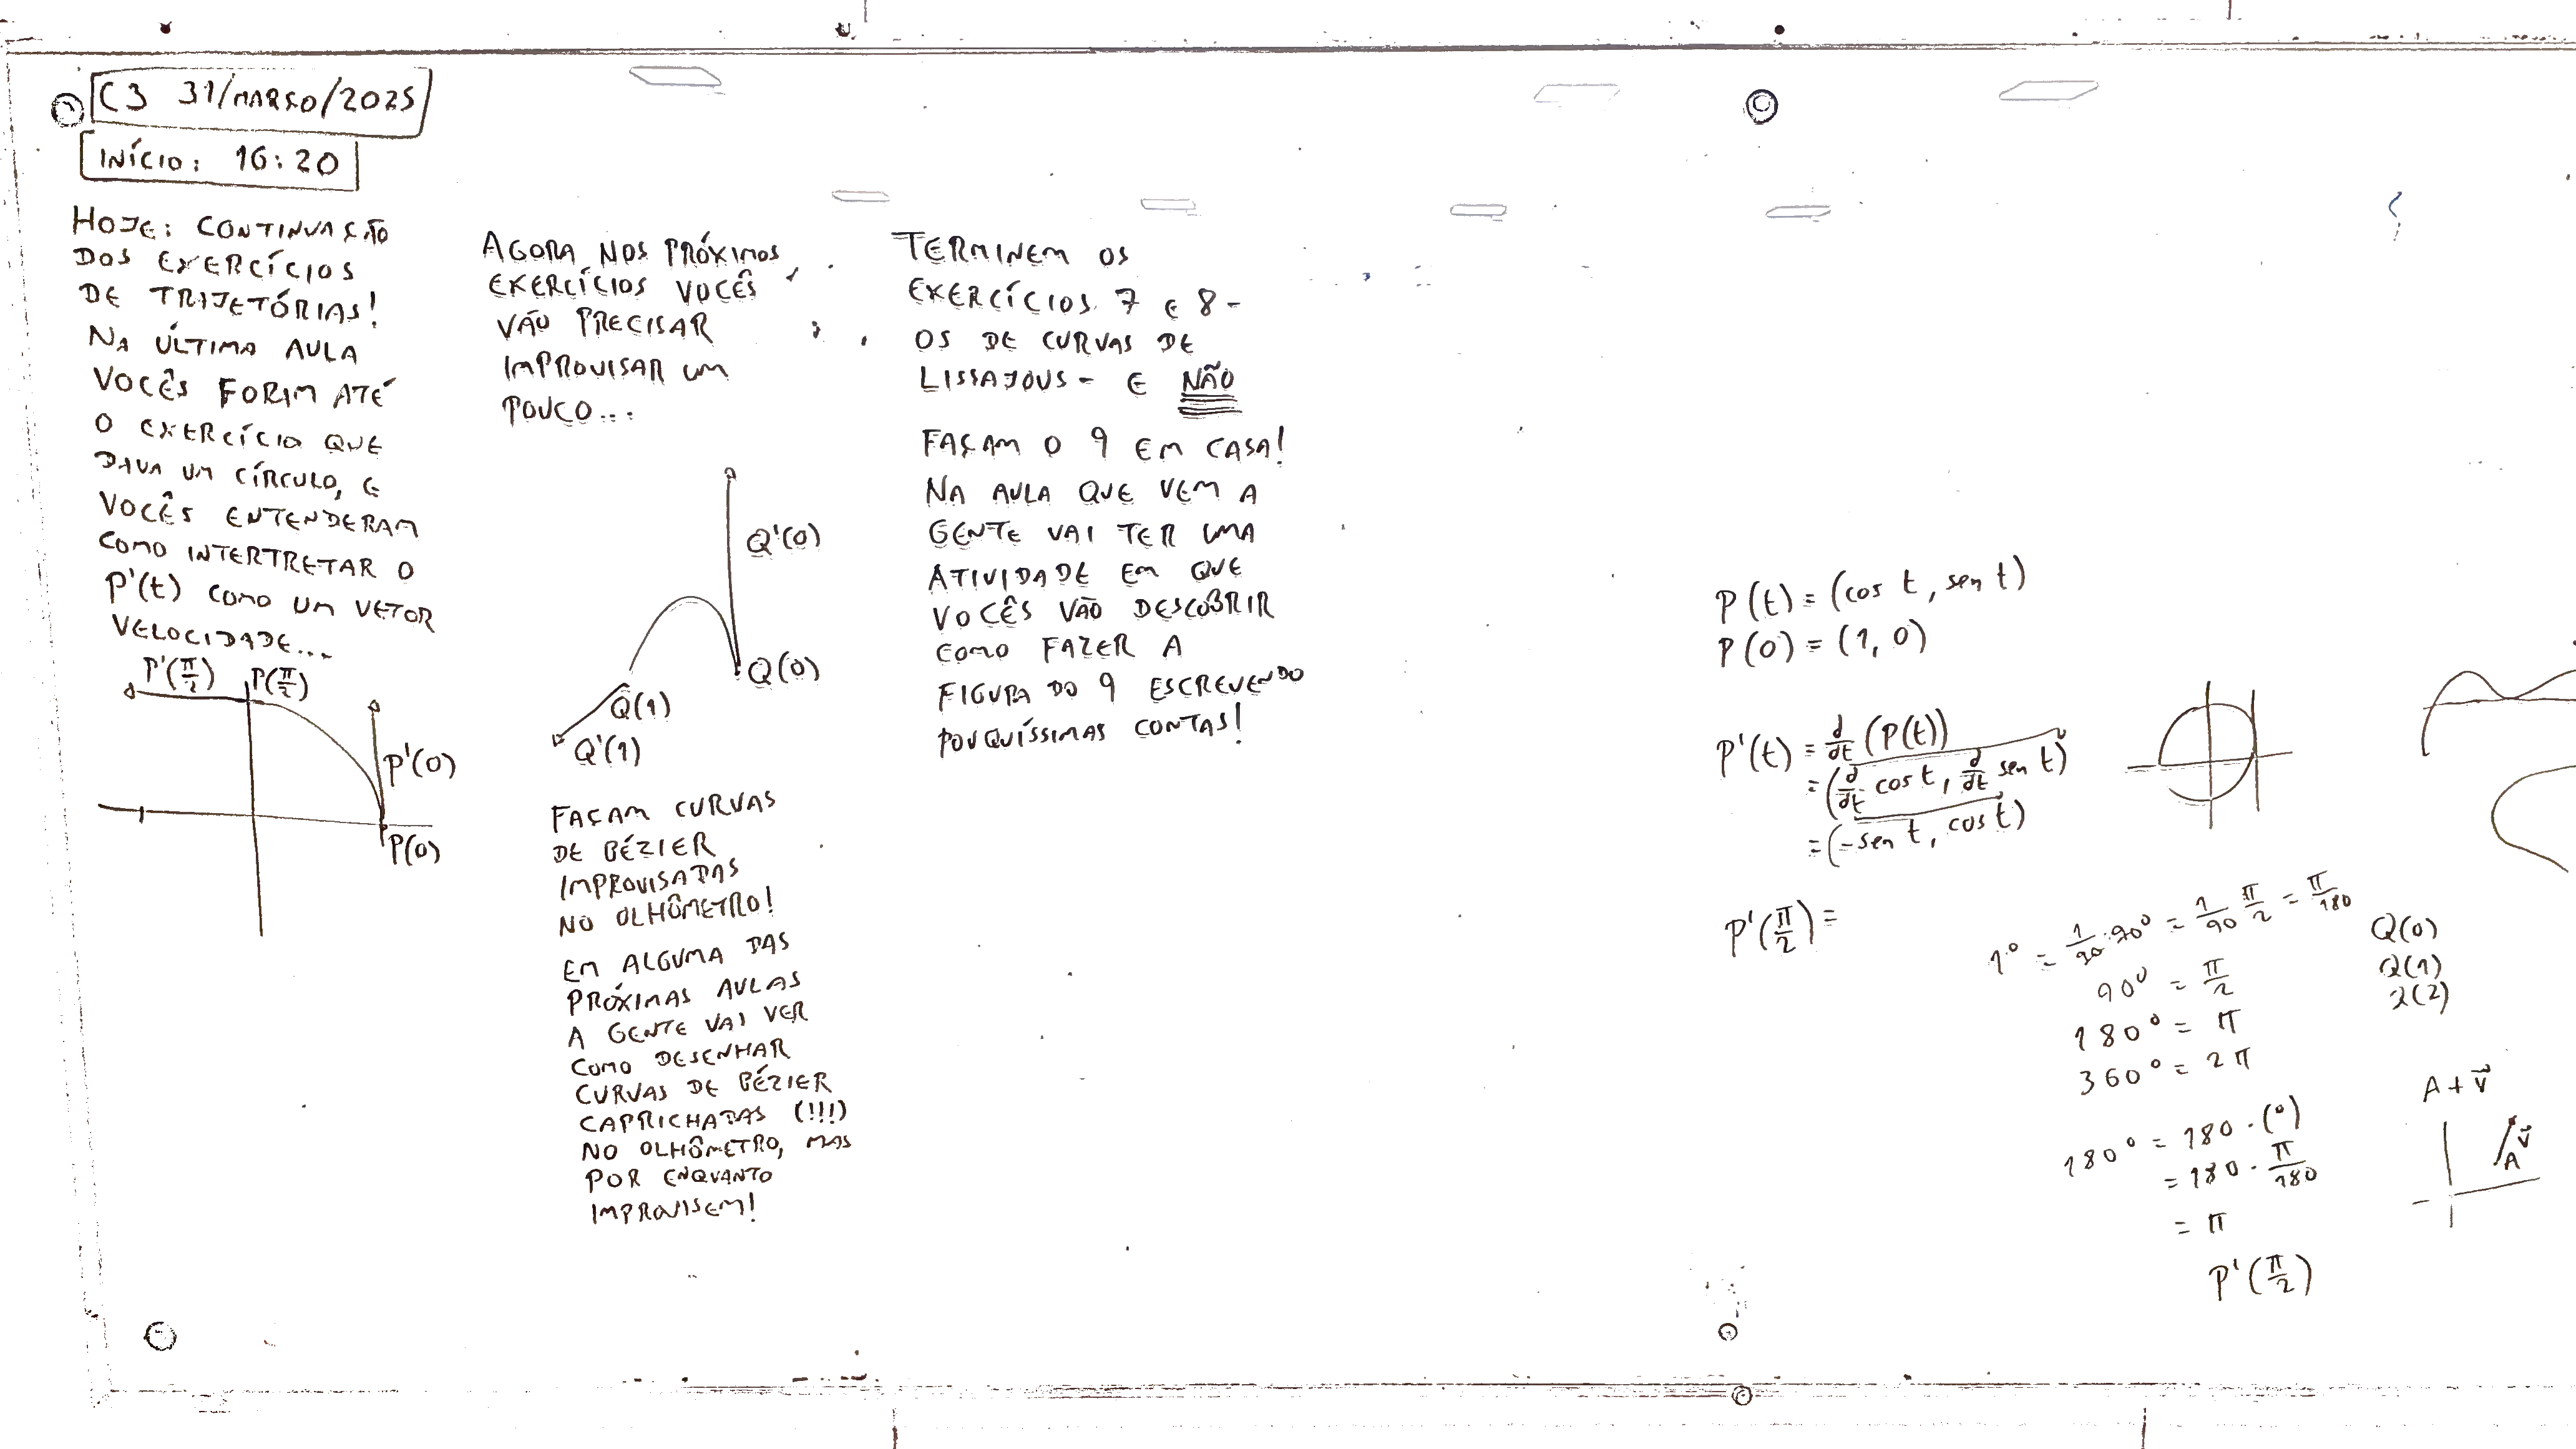 C3 31/MARÇO/2025
INÍCIO: 16:20
HOJE: CONTINUAÇÃO
DOS EXERCÍCIOS
DE TRAJETÓRIAS!
NA ÚLTIMA AULA
VOCÊS FORAM ATÉ
O EXERCÍCIO QUE
DAVA UM CÍRCULO, E
VOCÊS ENTENDERAM
COMO INTERPRETAR O
P'(t) COMO UM VETOR
VELOCIDADE...
P'(π/2) P(π/2)
P'(0)
P(0)
AGORA NOS PRÓXIMOS
EXERCÍCIOS VOCÊS
VÃO PRECISAR
IMPROVISAR UM
POUCO...
Q'(0)
Q(0)
Q(1)
Q'(1)
FAÇAM CURVAS
DE BÉZIER
IMPROVISADAS
NO OLHÔMETRO!
EM ALGUMA DAS
PRÓXIMAS AULAS
A GENTE VAI VER
COMO DESENHAR
CURVAS DE BÉZIER
CAPRICHADAS (!!!)
NO OLHÔMETRO, MAS
POR ENQUANTO
IMPROVISEM!
TERMINEM OS
EXERCÍCIOS 7 E 8 -
OS DE CURVAS DE
LISSAJOUS - E NÃO
FAÇAM O 9 EM CASA!
NA AULA QUE VEM A
GENTE VAI TER UMA
ATIVIDADE EM QUE
VOCÊS VÃO DESCOBRIR
COMO FAZER A
FIGURA DO 9 ESCREVENDO
POUQUÍSSIMAS CONTAS!
P(t) = (cos t, sen t)
P(0) = (1, 0)
P'(t) = d/dt (P(t))
= (d/dt cos t, d/dt sen t)
= (-sen t, cos t)
P'(π/2) =
1° = 1/90 · 90° = 1/90 π/2 = π/180
90° = π/2
180° = π
360° = 2π
180° = 180 · (°)
= 180 · π/180
= π
P'(π/2)
Q(0)
Q(1)
Q(2)
A + v⃗
v⃗
A